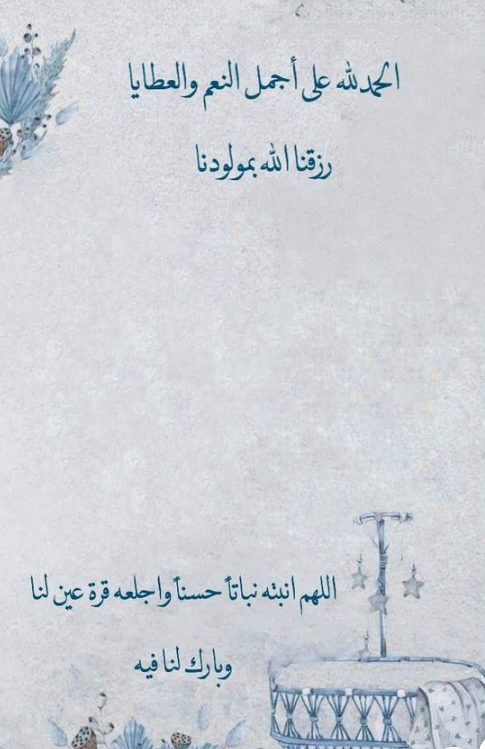 الحمدلله على أجمل النعم والعطايا
رزقنا الله بمولودنا
اللهم انبته نباتاً حسناً واجلعه قرة عين لنا
وبارك لنا فيه